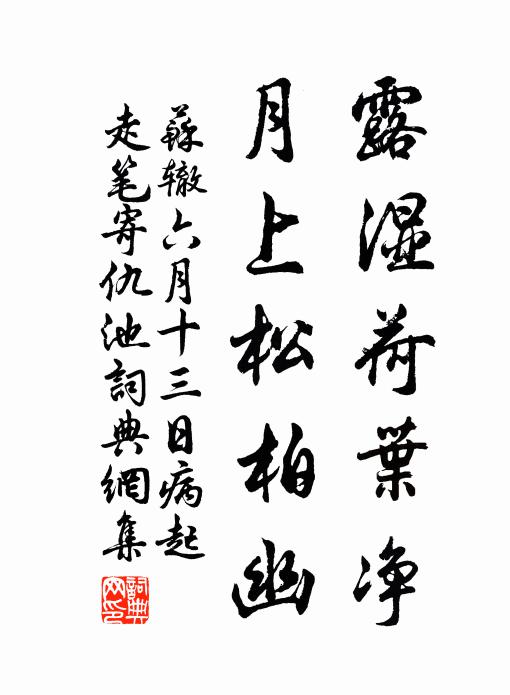 露濕荷葉净
月上松柏幽
蘇辙六月十三日病起
走笔寄仇池詞典網集
詞典
网印